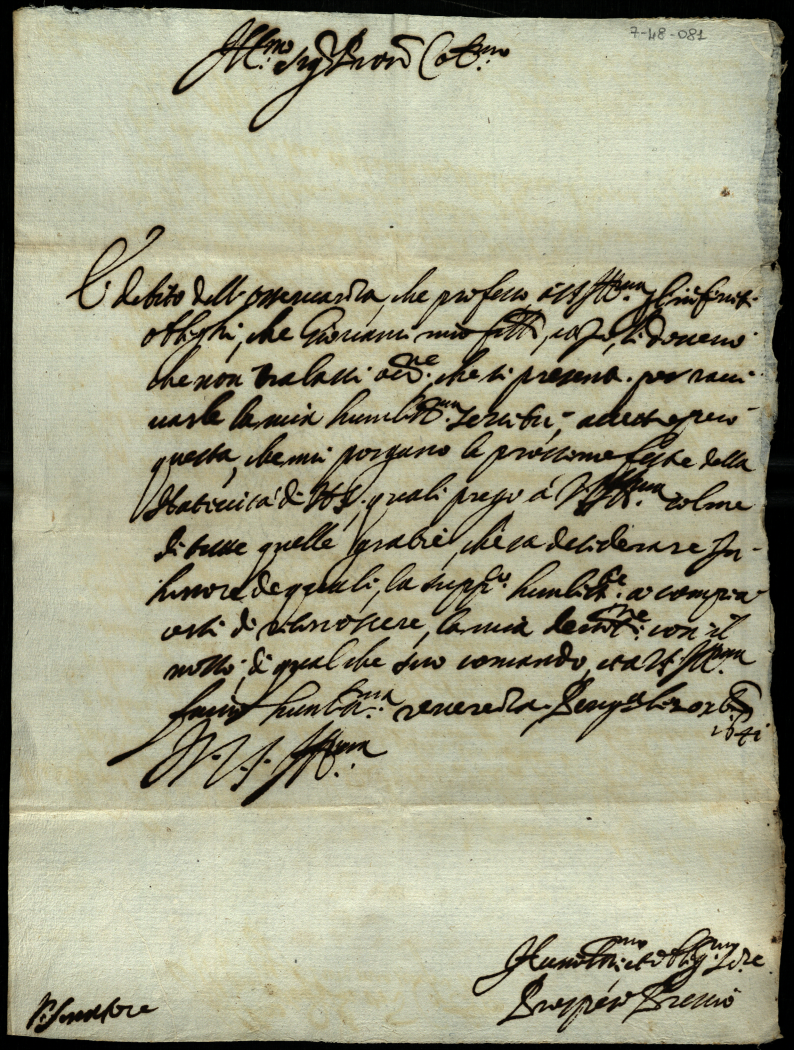 7-48-081
Ill.mo Sig.r Pron Col.mo
Il debito dell'osservanza, che professo à VS Ill.ma, gl'infiniti
oblighi, che Giovanni mio le devono
che non tralassi occ.ne, che si presenta per ravi
varle la mia humiliss.ma servitù, accert
questa, che mi porgano le prossime feste della
Natività di NS. quali prego à VS Ill.ma colme
di tutte quelle gratie, che sa desiderare In
honore de quali, la supp.co humilm.te a compia
cersi di riconoscere, la mia con il
motto, di qualche suo comando, et a VS Ill.ma
faccio humiliss.ma reverenza
1641
D. V. S. Ill.ma
Humiliss.mo et oblig.mo Ser.re
Prospero
S.r Senatore